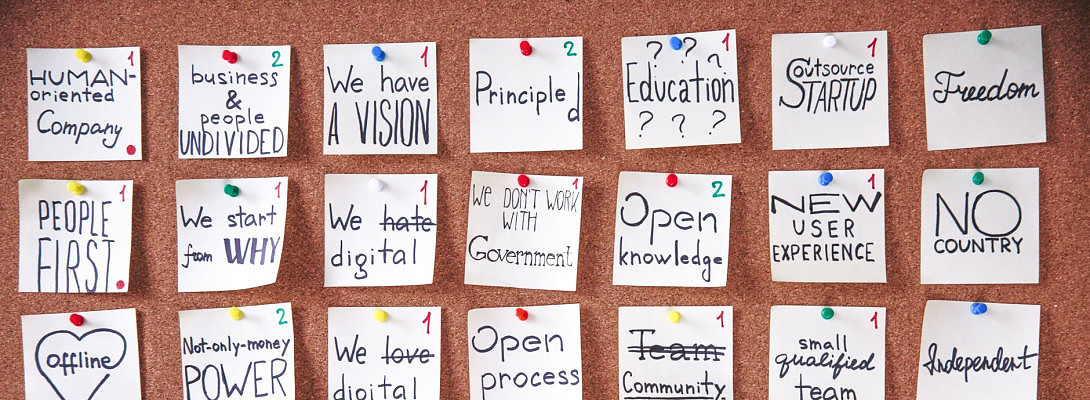 1
HUMAN-
oriented
Company
2
business
&
people
UNDIVIDED
1
We have
A VISION
2
Principled
1
? ? ?
Education
? ? ?
1
Outsource
STARTUP
Freedom
1
PEOPLE
FIRST.
1
We start
from WHY
1
We hate
digital
1
We DON'T WORK
WITH
Government
2
Open
knowledge
1
NEW
USER
EXPERIENCE
NO
COUNTRY
offline
2
Not-only-money
POWER
1
We love
digital
Open
process
1
Team
Community
1
small
qualified
team
Independent